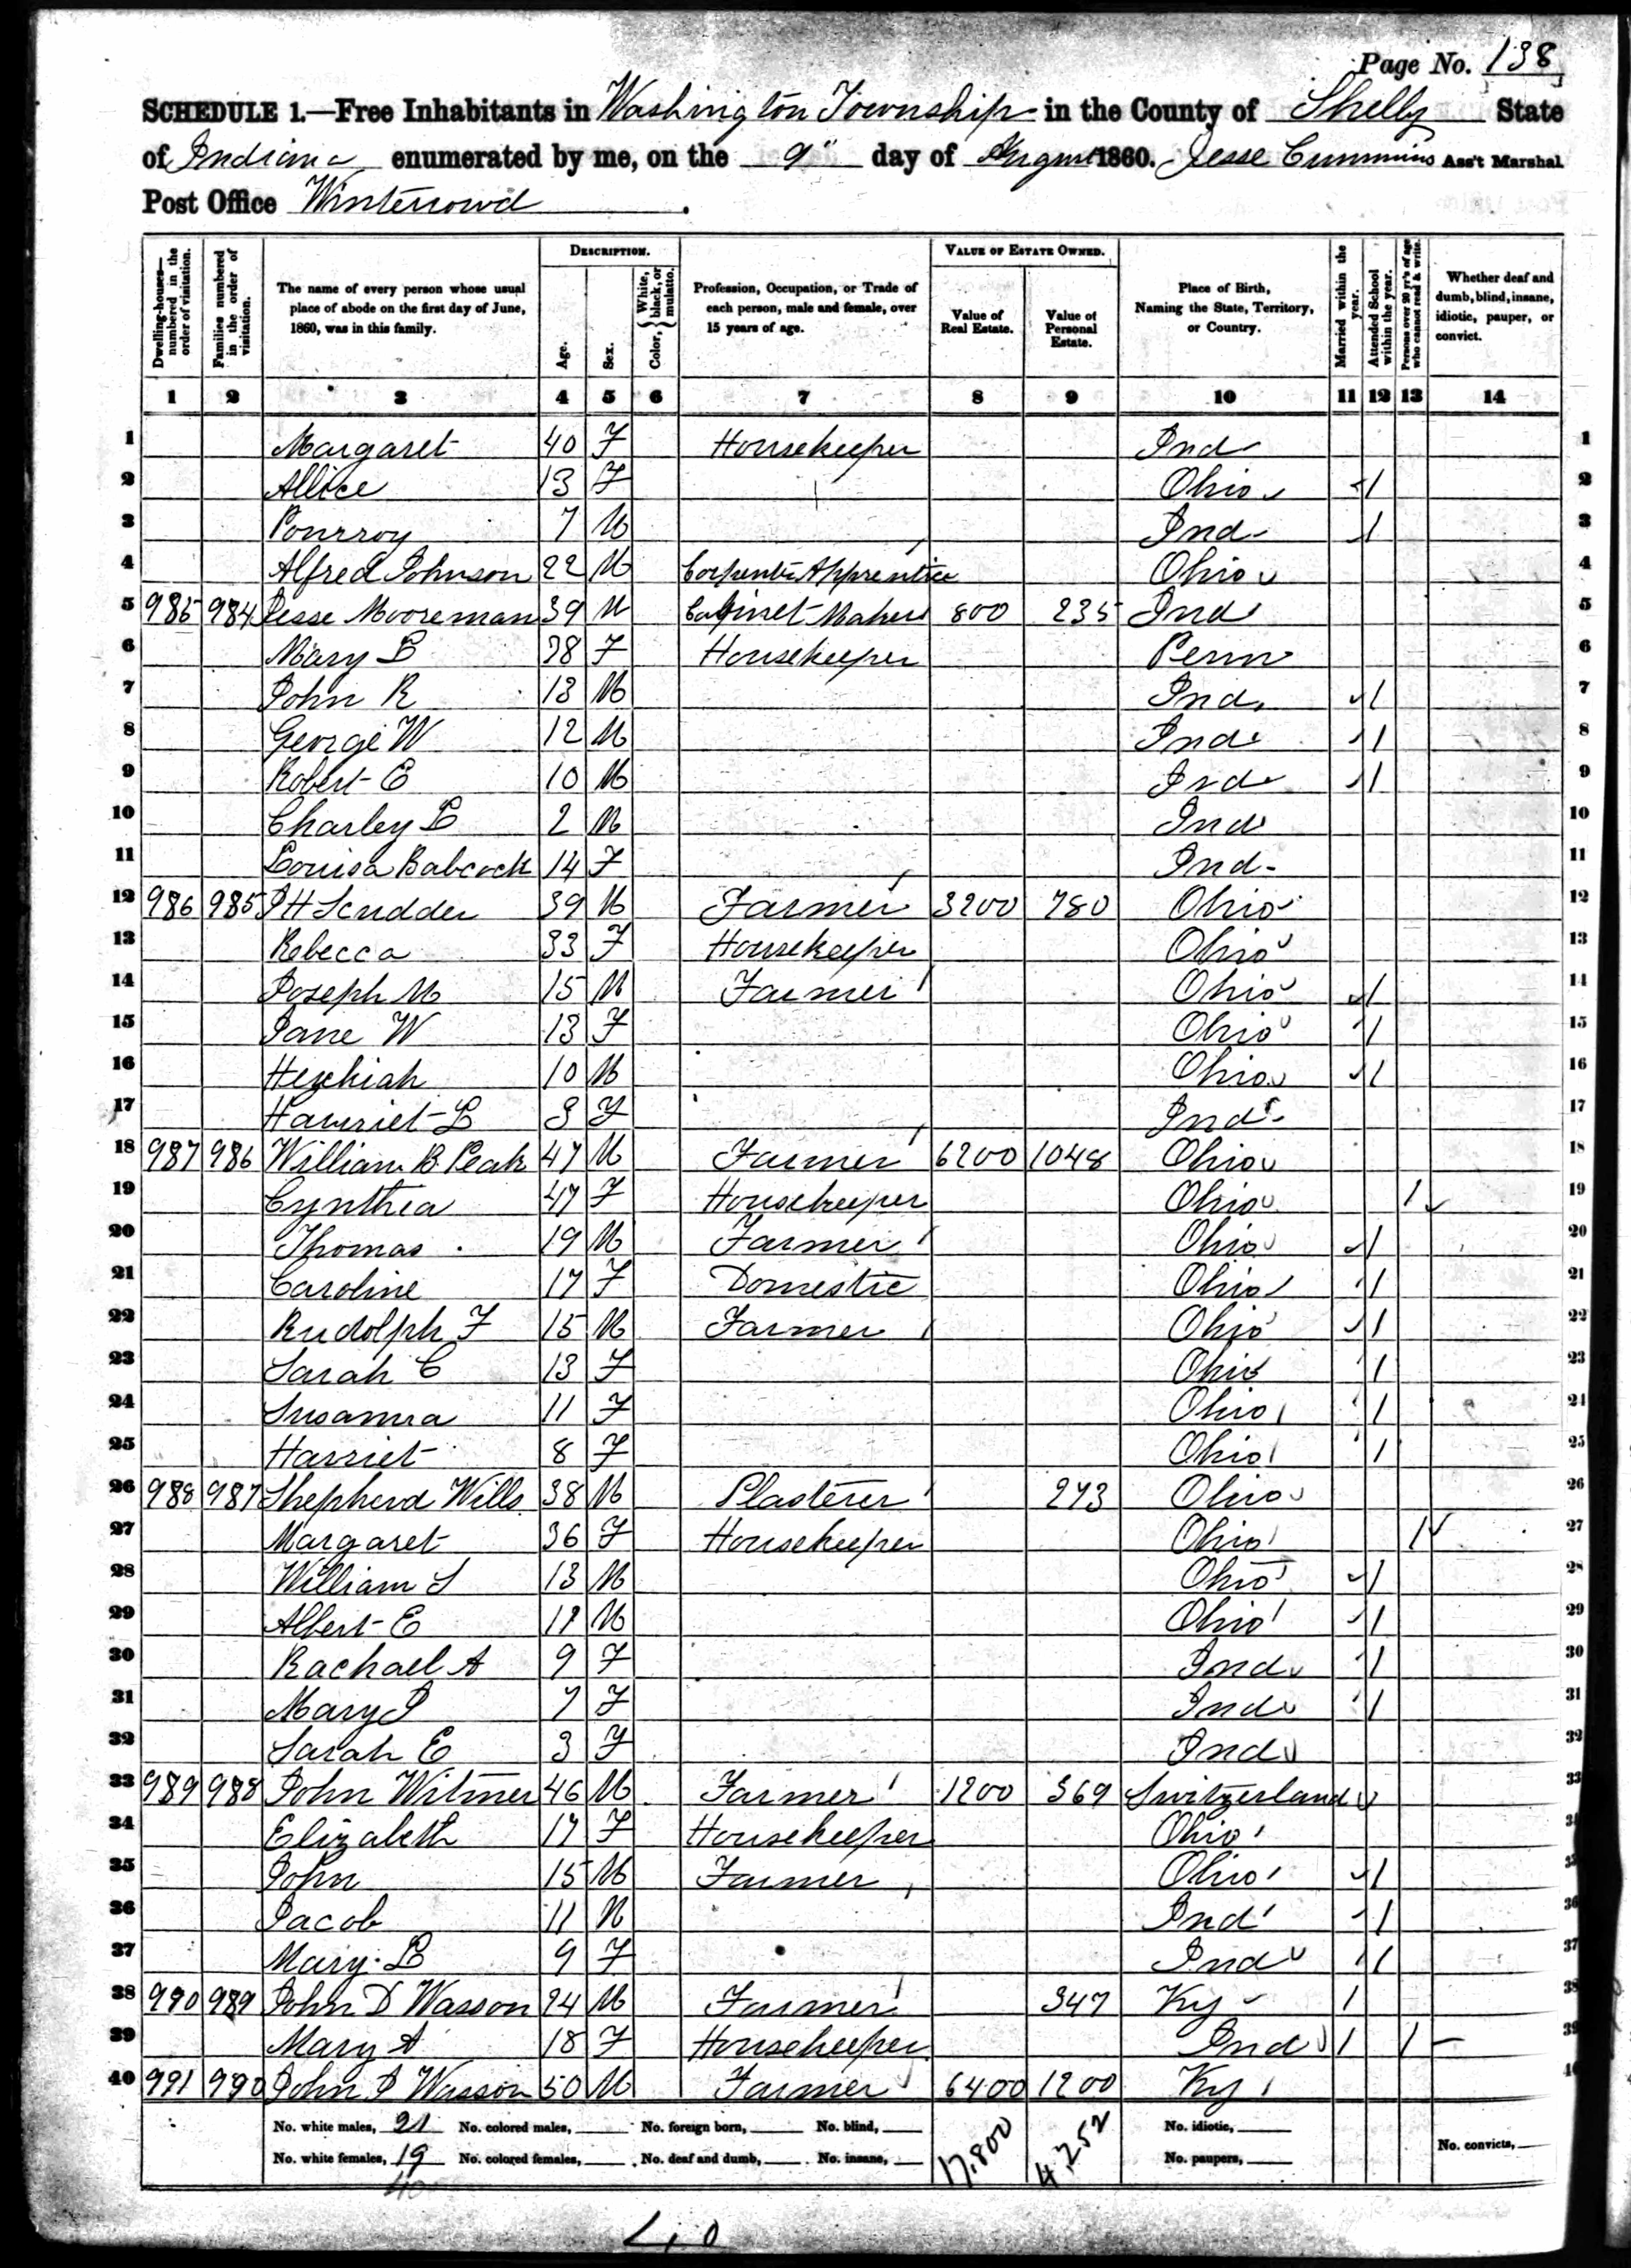 Page No. 138
SCHEDULE 1.—Free Inhabitants in Washington Township in the County of Shelby State
of Indiana enumerated by me, on the 9" day of August 1860. Jesse Cummins Ass't Marshal
Post Office Winterrowd.
Dwelling-houses—numbered in the order of visitation.
Families numbered in the order of visitation.
The name of every person whose usual place of abode on the first day of June, 1860, was in this family.
DESCRIPTION.
Age.
Sex.
Color, { White, black, or mulatto.
Profession, Occupation, or Trade of each person, male and female, over 15 years of age.
VALUE OF ESTATE OWNED.
Value of Real Estate.
Value of Personal Estate.
Place of Birth, Naming the State, Territory, or Country.
Married within the year.
Attended School within the year.
Persons over 20 yr's of age who cannot read & write.
Whether deaf and dumb, blind, insane, idiotic, pauper, or convict.
1 2 3 4 5 6 7 8 9 10 11 12 13 14
1 Margaret 40 F Housekeeper Ind 1
2 Allice 13 F Ohio / 2
3 7 M Ind / 3
4 Alfred Johnson 22 M Carpenter Apprentice Ohio 4
5 985 984 Jesse Mooreman 39 M Cabinet Maker 800 235 Ind 5
6 Mary L 38 F Housekeeper Penn 6
7 John R 13 M Ind / 7
8 George W 12 M Ind / 8
9 Robert E 10 M Ind / 9
10 Charley L 2 M Ind 10
11 Louisa Babcock 14 F Ind 11
12 986 985 J H Scudder 39 M Farmer 3200 780 Ohio 12
13 Rebecca 33 F Housekeeper Ohio 13
14 Joseph M 15 M Farmer Ohio / 14
15 Jane W 13 F Ohio / 15
16 Hezekiah 10 M Ohio / 16
17 Harriet L F Ind 17
18 987 986 William B Peak 47 M Farmer 6200 1048 Ohio 18
19 Cynthia 47 F Housekeeper Ohio / 19
20 Thomas 19 M Farmer Ohio / 20
21 Caroline 17 F Domestic Ohio / 21
22 Rudolph F 15 M Farmer Ohio / 22
23 Sarah C 13 F Ohio / 23
24 Susanna 11 F Ohio / 24
25 Harriet 8 F Ohio / 25
26 988 987 Shepherd Wills 38 M Plasterer 273 Ohio 26
27 Margaret 36 F Housekeeper Ohio / 27
28 William S 13 M Ohio / 28
29 Albert E 11 M Ohio / 29
30 Rachael A 9 F Ind / 30
31 Mary J 7 F Ind / 31
32 Sarah E 3 F Ind 32
33 989 988 John Witmer 46 M Farmer 1200 369 Switzerland 33
34 Elizabeth 17 F Housekeeper Ohio 34
35 John 15 M Farmer Ohio / 35
36 Jacob 11 M Ind / 36
37 Mary B 9 F Ind / 37
38 990 989 John D Wasson 24 M Farmer 347 Ky / 38
39 Mary A 18 F Housekeeper Ind / / 39
40 991 990 John J Wasson 50 M Farmer 6400 1200 Ky 40
No. white males, 21 No. colored males, No. foreign born, No. blind, 17,800 4,252 No. idiotic,
No. white females, 19 No. colored females, No. deaf and dumb, No. insane, No. paupers, No. convicts,
40
40